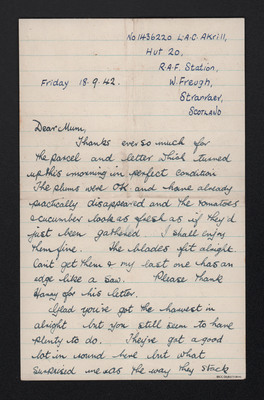 No 1436220 L.A.C. Akrill,
Hut 20,
R.A.F. Station,
Friday 18.9.42. W. Freugh,
Stranraer,
SCOTLAND
Dear Mum,
Thanks ever so much for
the parcel and letter which turned
up this morning in perfect condition
The plums were OK and have already
practically disappeared and the tomatoes
& cucumber look as fresh as if they'd
just been gathered I shall enjoy
them fine. The blades fit alright
Cant get them & my last one has an
edge like a saw. Please thank
Harry for his letter.
Glad you've got the harvest in
alright but you still seem to have
plenty to do. They've got a good
lot in round here but what
surprised me was the way they stack